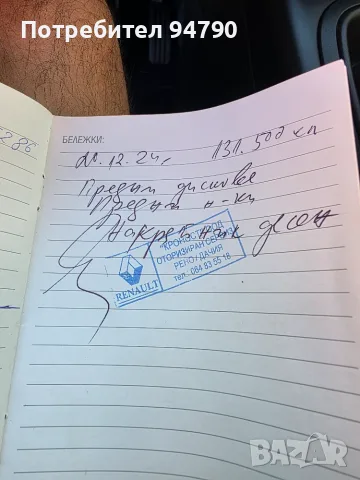 Потребител 94790
286
БЕЛЕЖКИ:
20.12.24г. 131.500 км
Предни дискове
Предни н-ки
Накрайник десен
"КРОНОС" ООД
ОТОРИЗИРАН СЕРВИЗ
РЕНО / ДАЧИЯ
тел.: 064 83 55 18
RENAULT
bazar